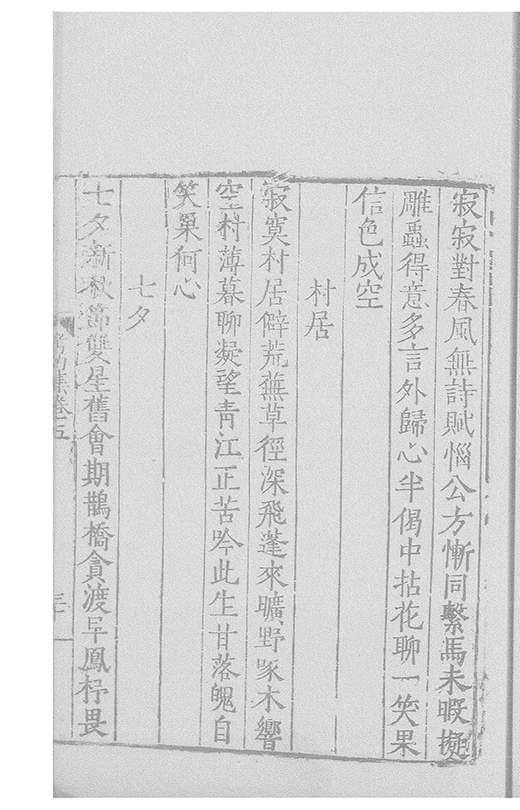 寂寂對春風無詩賦惱公方慚同繫馬未暇擬
雕蟲得意多言外歸心半偈中拈花聊一笑果
信色成空
村居
寂寞村居僻荒蕪草徑深飛蓬來曠野啄木響
空村薄暮聊凝望青江正苦吟此生甘落魄自
笑果何心
七夕
七夕新秋節雙星舊會期鵲橋貪渡早鳳杼畏
集卷五